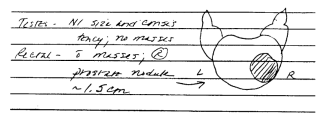 Testes - Nl size and consis
tency; no masses
Rectal - ō masses; Ⓡ
prostate nodule
~ 1.5 cm
L R